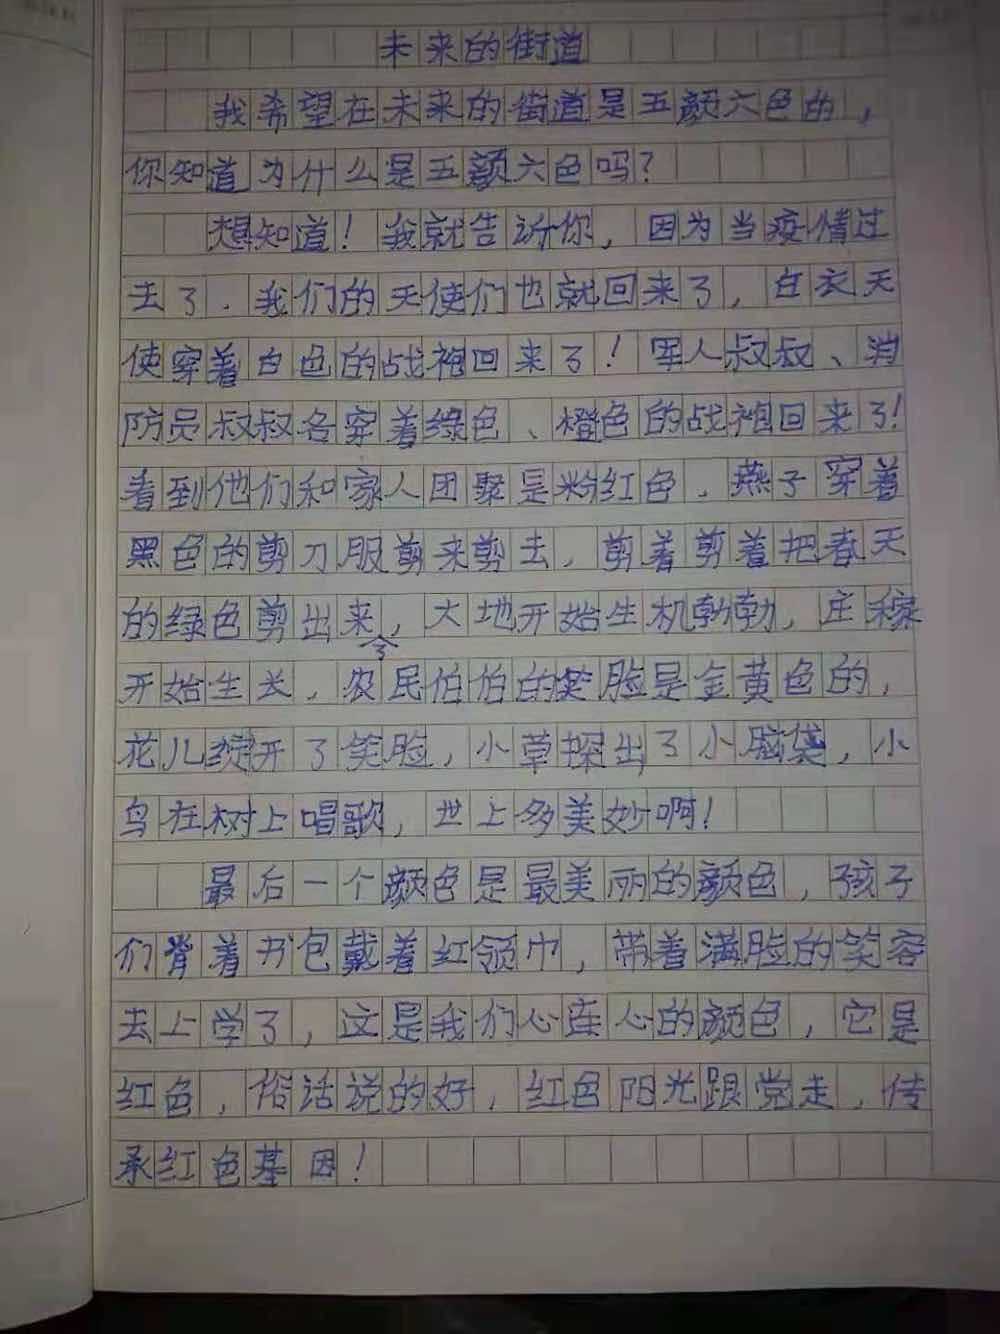 未来的街道
我希望在未来的街道是五颜六色的，
你知道为什么是五颜六色吗？
想知道！我就告诉你，因为当疫情过
去了．我们的天使们也就回来了，白衣天
使穿着白色的战袍回来了！军人叔叔、消
防员叔叔各穿着绿色、橙色的战袍回来了！
看到他们和家人团聚是粉红色．燕子穿着
黑色的剪刀服剪来剪去，剪着剪着把春天
的绿色剪出来了，大地开始生机勃勃，庄稼
开始生长，农民伯伯的笑脸是金黄色的，
花儿绽开了笑脸，小草探出了小脑袋，小
鸟在树上唱歌，世上多美妙啊！
最后一个颜色是最美丽的颜色，孩子
们背着书包戴着红领巾，带着满脸的笑容
去上学了，这是我们心连心的颜色，它是
红色，俗话说的好，红色阳光跟党走，传
承红色基因！